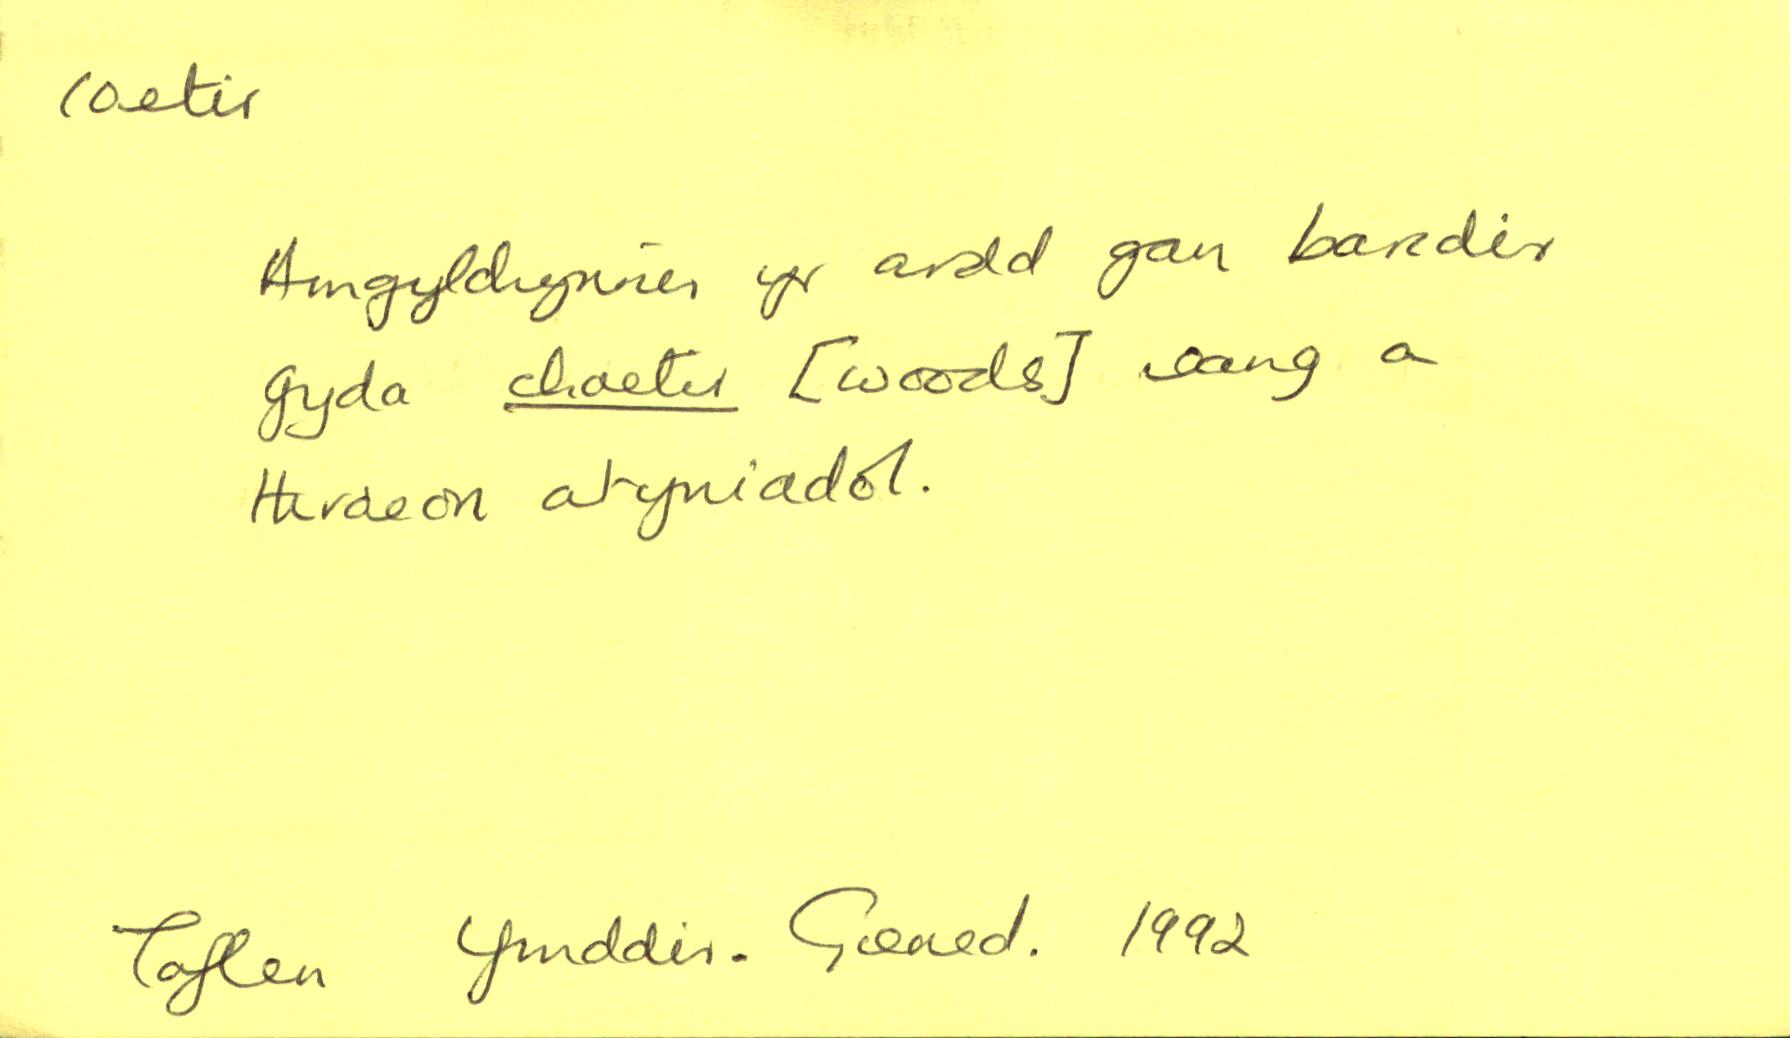 coetir
Amgylchynir yr ardd gan barcdir
gyda choetir [woods] eang a
thiroedd atyniadol.
Taflen Ymddir. Cened. 1992